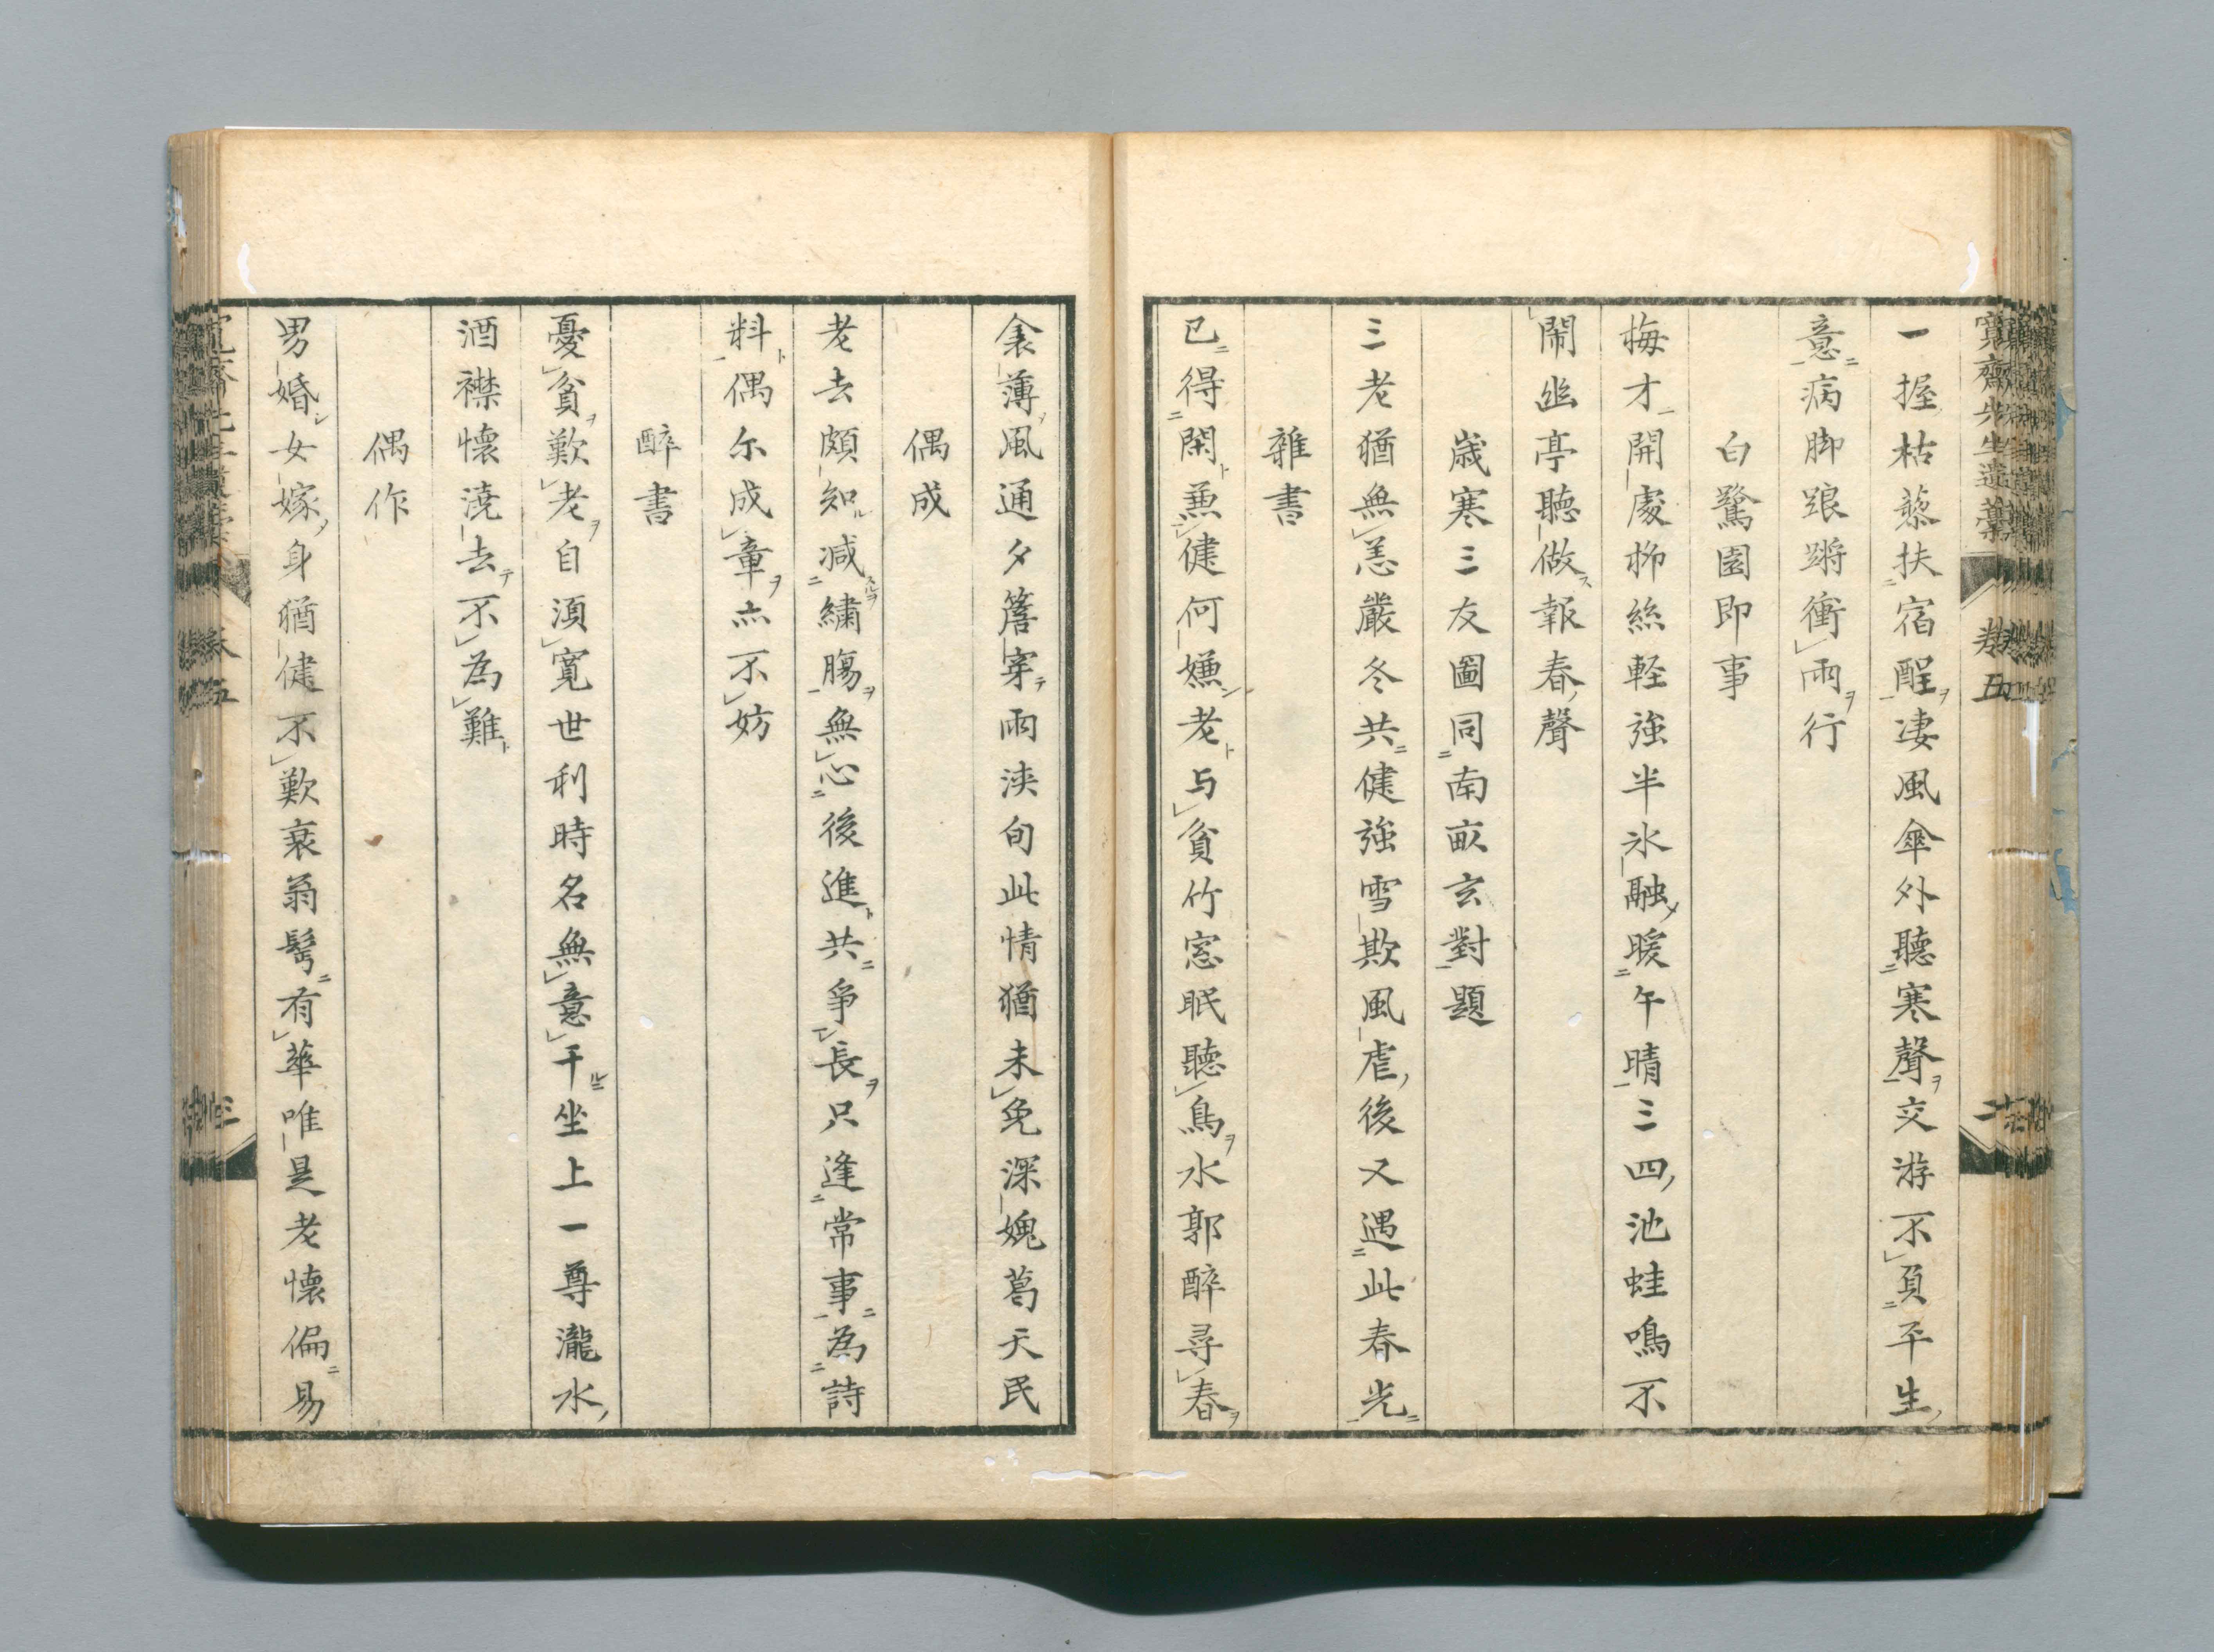 寛齋先生遺藁 卷五
一握枯藜扶宿酲凄風傘外聽寒聲交游不負平生
意病脚踉蹡衝雨行
白鷺園即事
梅才開處柳絲軽強半氷融暖午晴三四池蛙鳴不
閙幽亭聽做報春聲
歳寒三友圖同南畝玄對題
三老猶無恙嚴冬共健強雪欺風虐後又遇此春光
雜書
已得閑兼健何嫌老与貧竹窓眠聽鳥水郭醉尋春
衾薄風通夕簷穿雨浹旬此情猶未免深媿葛天民
偶成
老去頗知减繡膓無心後進共爭長只逢常事為詩
料偶尓成章亦不妨
醉書
憂貧歎老自湏寛世利時名無意干坐上一尊瀧水
酒襟懐澆去不為難
偶作
男婚女嫁身猶健不歎衰翁髩有華唯是老懐偏易